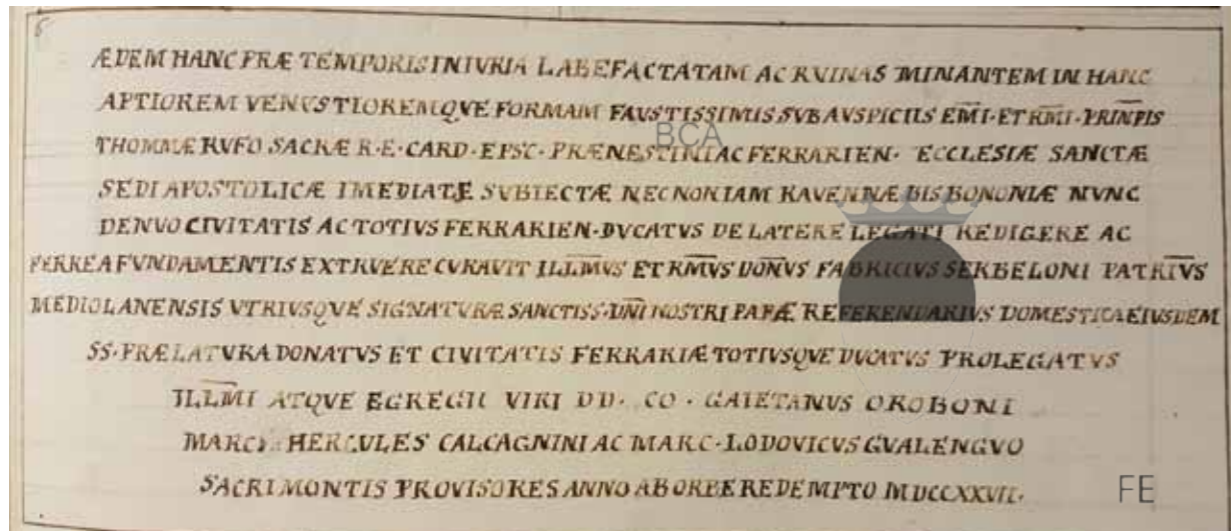 6
ÆDEM HANC PRÆ TEMPORIS INIVRIA LABEFACTATAM AC RVINAS MINANTEM IN HANC
APTIOREM VENVSTIOREMQVE FORMAM FAVSTISSIMIS SVB AVSPICIIS EM̅I·ET RM̅I·PRIN̅PIS
THOMMÆ RVFO SACRÆ R·E·CARD·EPSC·PRÆNESTINI AC FERRARIEN· ECCLESIÆ SANCTÆ
SEDI APOSTOLICÆ IMEDIATÆ SVBIECTÆ NECNON IAM RAVENNÆ BIS BONONIÆ NVNC
DENVO CIVITATIS AC TOTIVS FERRARIEN·DVCATVS DE LATERE LEGATI REDIGERE AC
FERRE A FVNDAMENTIS EXTRVERE CVRAVIT ILLM̅VS ET RM̅VS DON̅VS FABRICIVS SERBELONI PATRIV̅S
MEDIOLANENSIS VTRIVSQVE SIGNATVRÆ SANCTISS·DN̅I NOSTRI PAPÆ REFERENDARIVS DOMESTICA EIVSDEM
SS·PRÆLATVRA DONATVS ET CIVITATIS FERRARIÆ TOTIVSQVE DVCATVS PROLEGATVS
ILLM̅I ATQVE EGREGII VIRI DD· CO · GAIETANVS OROBONI
MARC· HERCULES CALCAGNINI AC MARC·LODOVICVS GVALENGVO
SACRI MONTIS PROVISORES ANNO AB ORBE REDEMPTO MDCCXXVII·
BCA
FE